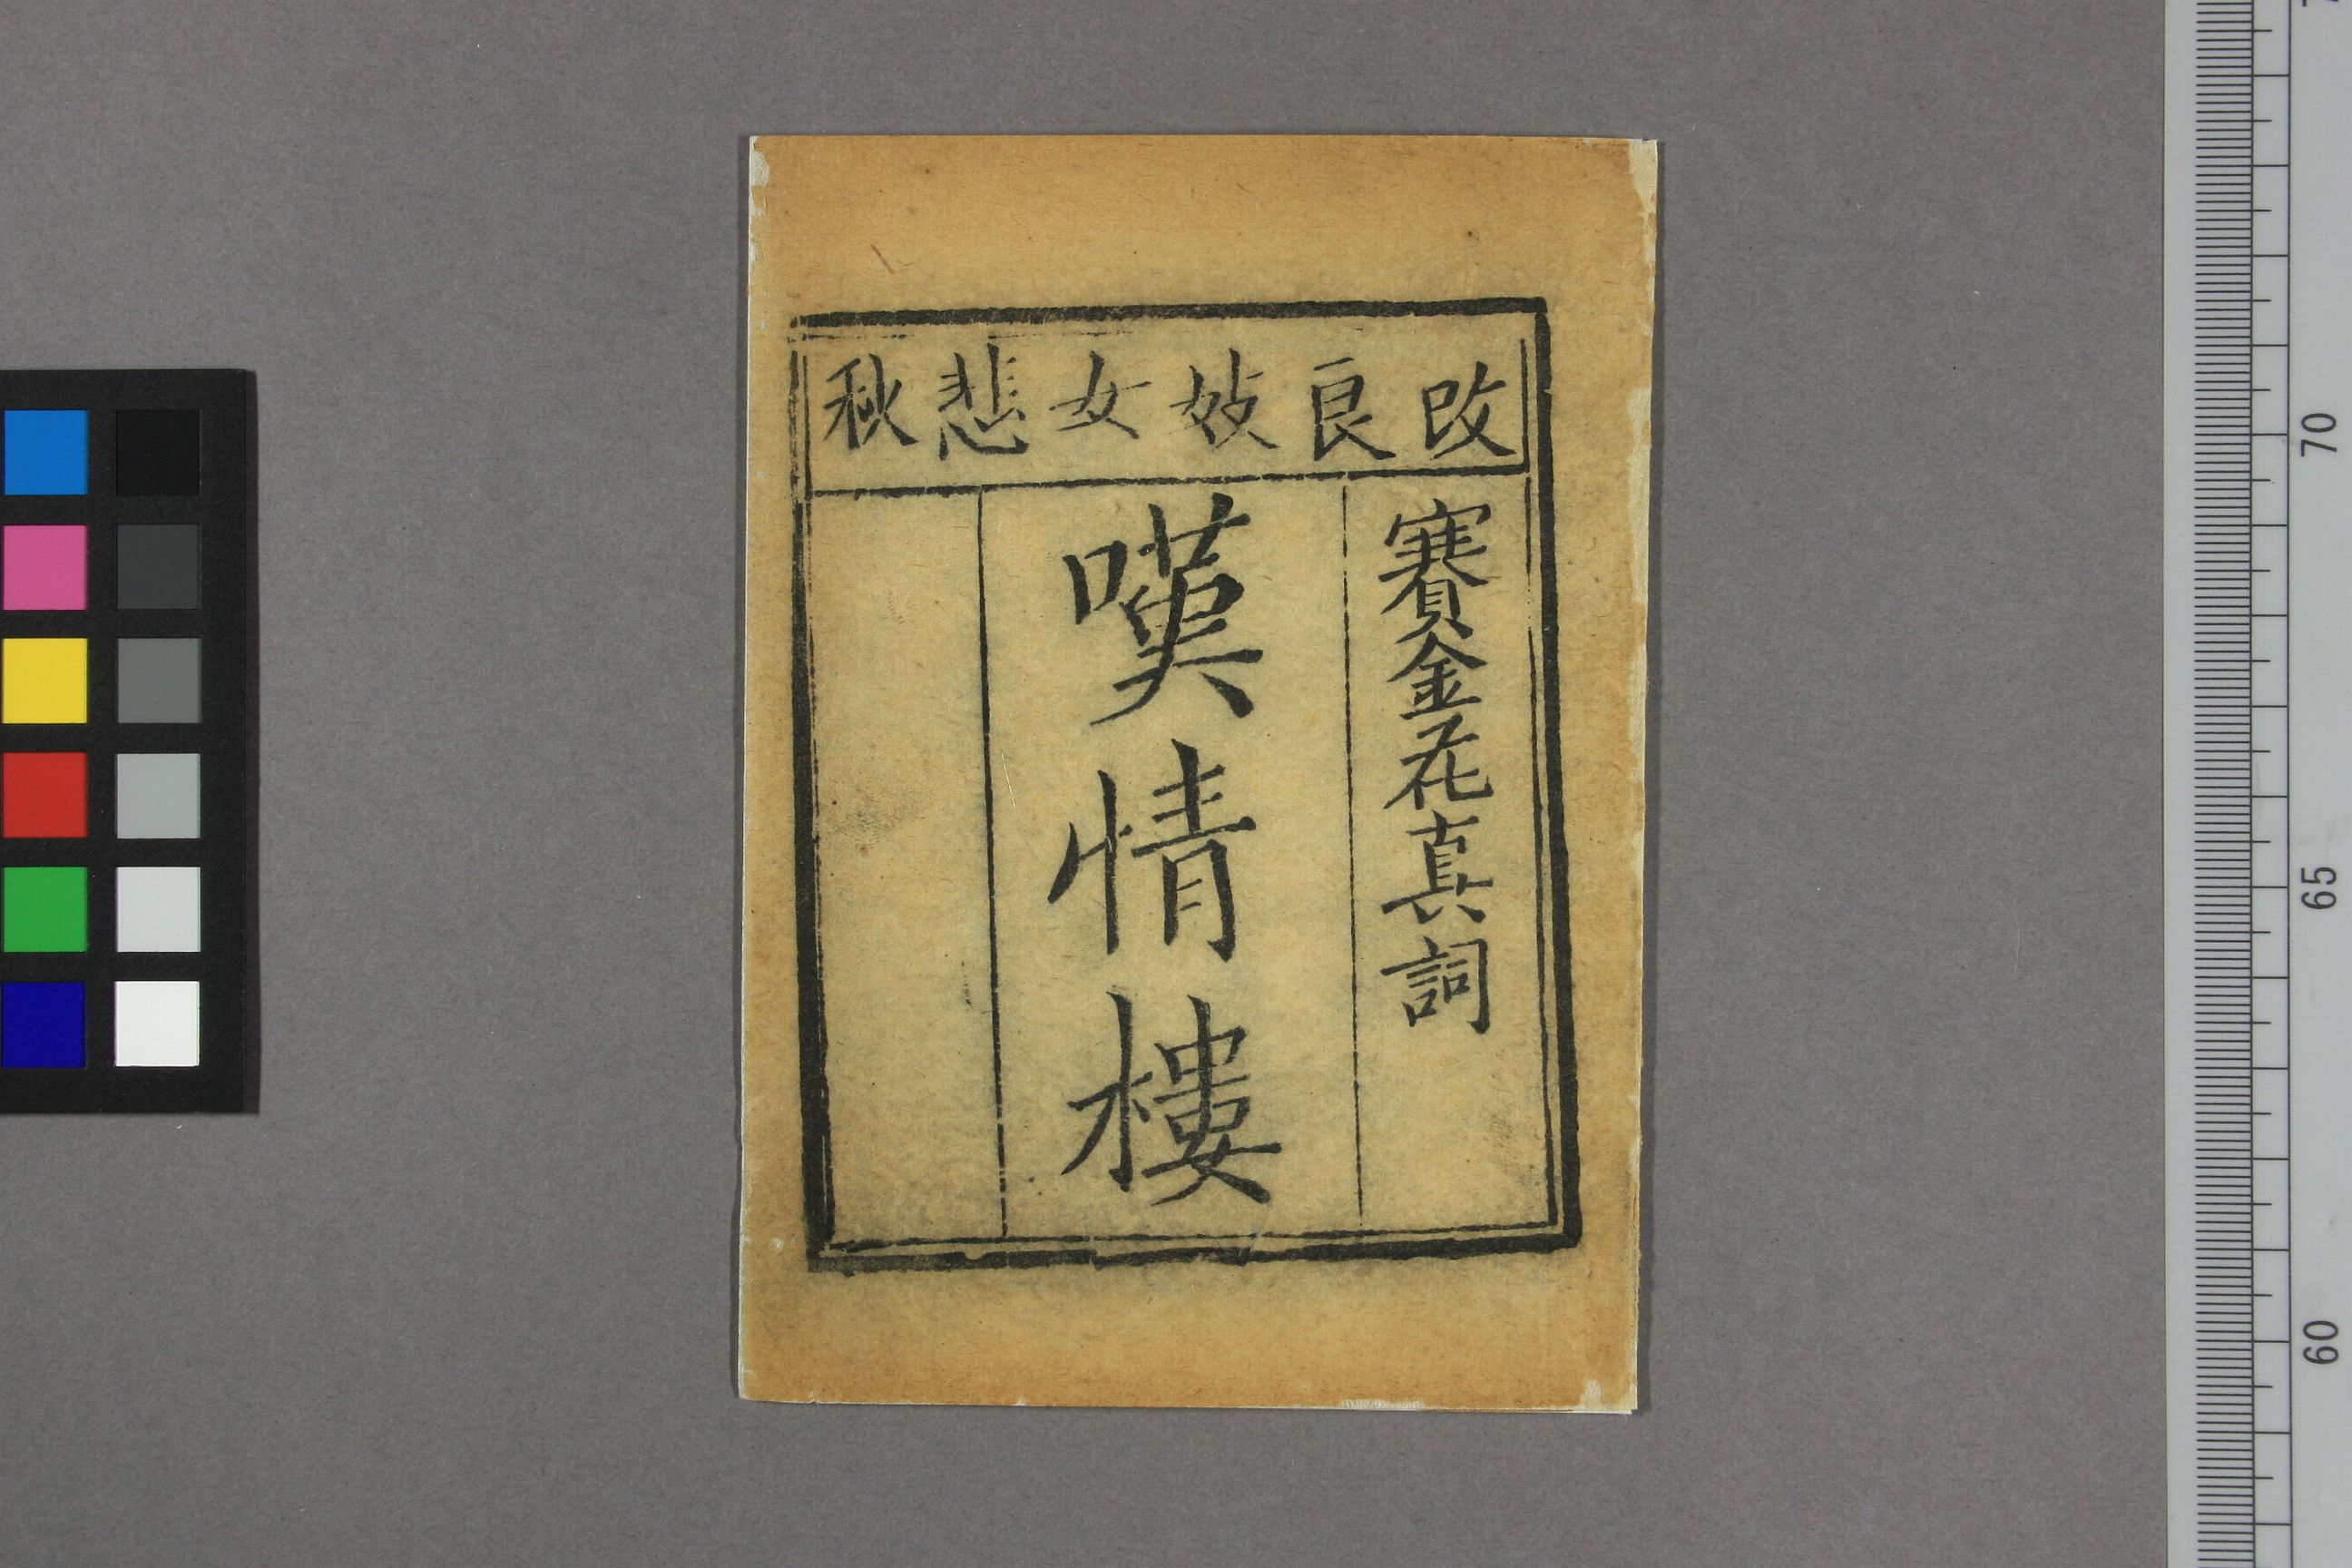 改良妓女悲秋
賽金花真詞
嘆情樓
70
65
60